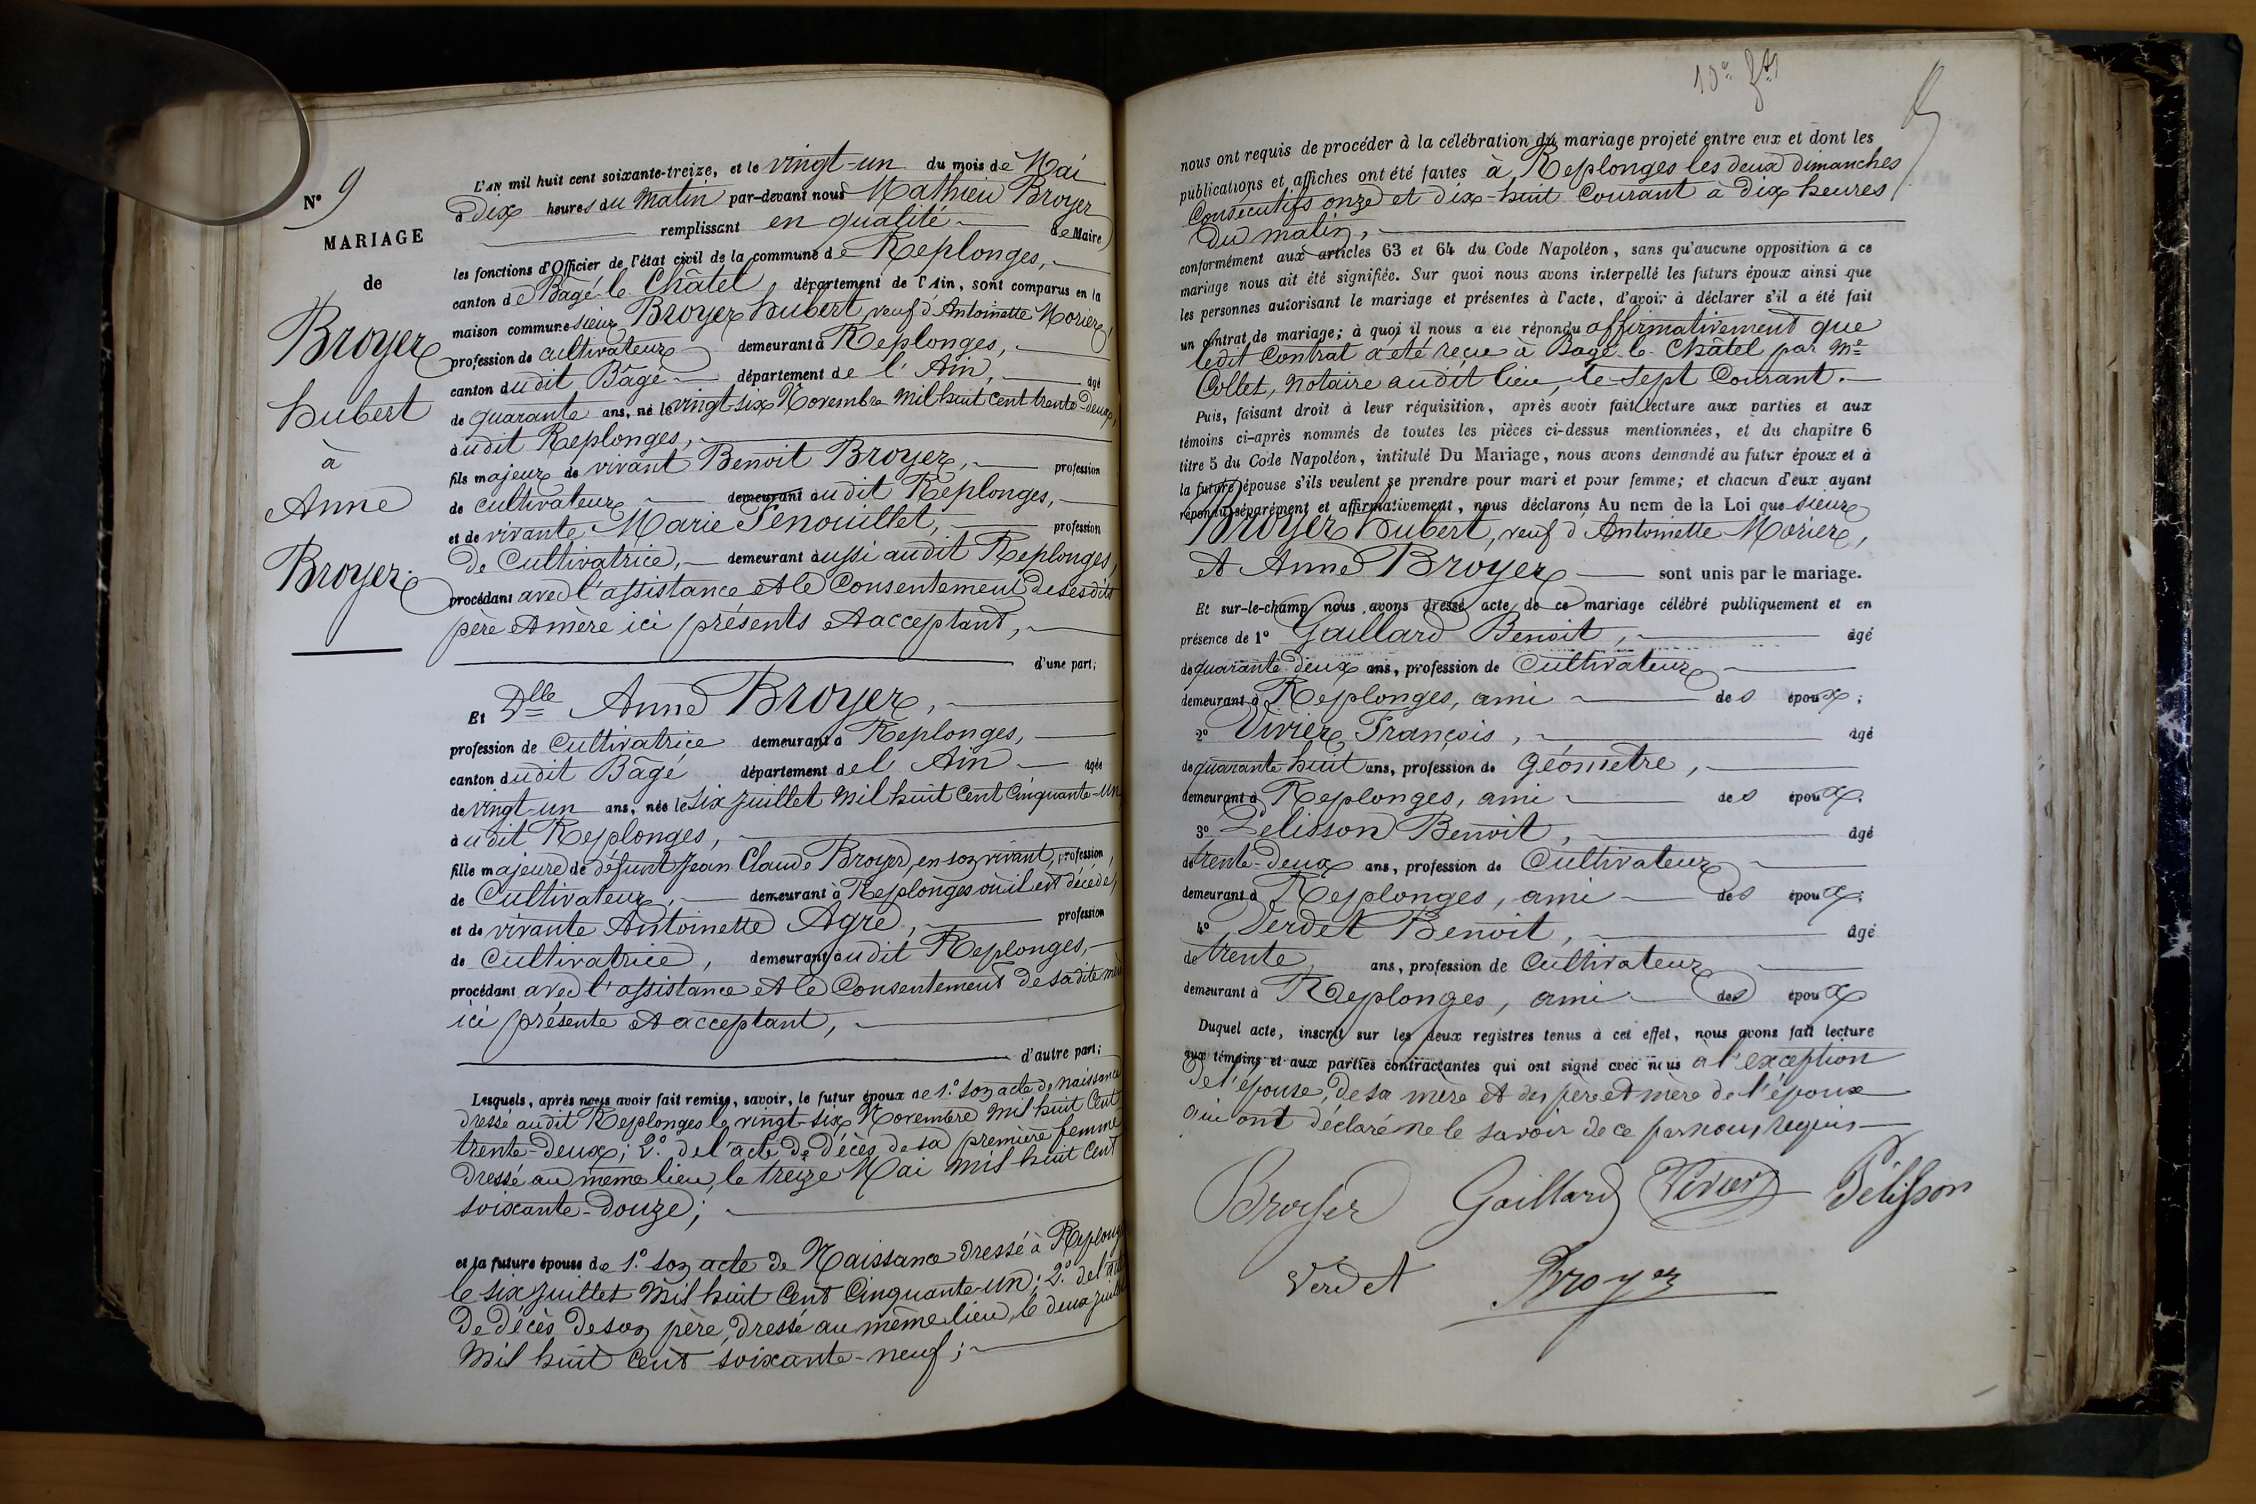 N° 9
MARIAGE
de
Broyer
hubert
à
Anne
Broyer.
L'AN mil huit cent soixante-treize, et le vingt-un du mois de Mai
à dix heures du Matin par-devant nous Mathieu Broyer
remplissant en qualité de Maire
les fonctions d'Officier de l'état civil de la commune de Replonges,
canton de Bâgé-le-Châtel département de l'Ain, sont comparus en la
maison commune sieur Broyer hubert, veuf d'Antoinette Morier,
profession de cultivateur demeurant à Replonges,
canton dudit Bâgé département de l'Ain, âgé
de quarante ans, né le vingt-six Novembre mil huit cent trente-deux,
audit Replonges,
fils majeur de vivant Benoit Broyer, profession
de cultivateur demeurant audit Replonges,
et de vivante Marie Penouillet, profession
de Cultivatrice, demeurant aussi audit Replonges,
procédant avec l'assistance et le Consentement de ses dits
père et mère ici présents et acceptant,
d'une part;
Et Dlle Anne Broyer,
profession de Cultivatrice demeurant à Replonges,
canton dudit Bâgé département de l'Ain âgée
de vingt-un ans, née le six juillet mil huit cent cinquante-un
audit Replonges,
fille majeure de défunt Jean Claude Broyer, en son vivant, profession
de Cultivateur, demeurant à Replonges où il est décédé,
et de vivante Antoinette Agre, profession
de Cultivatrice, demeurant audit Replonges,
procédant avec l'assistance et le Consentement de sa dite mère
ici présente et acceptant,
d'autre part;
Lesquels, après nous avoir fait remise, savoir, le futur époux de 1.° son acte de naissance
dressé audit Replonges le vingt-six Novembre mil huit Cent
trente-deux; 2.° de l'acte de décès de sa première femme
dressé au même lieu, le treize Mai mil huit Cent
soixante-douze;
et la future épouse de 1.° son acte de Naissance dressé à Replonges
le six juillet Mil huit Cent Cinquante-un; 2.° de l'acte
de décès de son père, dressé au même lieu, le deux juillet
Mil huit Cent soixante-neuf;
nous ont requis de procéder à la célébration du mariage projeté entre eux et dont les
publications et affiches ont été faites à Replonges les deux dimanches
Consécutifs onze et dix-huit Courant à dix heures
du matin,
conformément aux articles 63 et 64 du Code Napoléon, sans qu'aucune opposition à ce
mariage nous ait été signifiée. Sur quoi nous avons interpellé les futurs époux ainsi que
les personnes autorisant le mariage et présentes à l'acte, d'avoir à déclarer s'il a été fait
un contrat de mariage; à quoi il nous a été répondu affirmativement que
ledit Contrat a été reçu à Bagé-le-Châtel par Me
Collet, Notaire audit lieu, le sept Courant.
Puis, faisant droit à leur réquisition, après avoir fait lecture aux parties et aux
témoins ci-après nommés de toutes les pièces ci-dessus mentionnées, et du chapitre 6
titre 5 du Code Napoléon, intitulé Du Mariage, nous avons demandé au futur époux et à
la future épouse s'ils veulent se prendre pour mari et pour femme; et chacun d'eux ayant
répondu séparément et affirmativement, nous déclarons Au nom de la Loi que sieur
Broyer hubert, veuf d'Antoinette Morier,
et Anne Broyer sont unis par le mariage.
Et sur-le-champ nous avons dressé acte de ce mariage célébré publiquement et en
présence de 1° Gaillard Benoit, âgé
de quarante-deux ans, profession de Cultivateur
demeurant à Replonges, ami des époux;
2° Vivier François, âgé
de quarante-huit ans, profession de géomètre,
demeurant à Replonges, ami des époux;
3° Pelisson Benoit, âgé
de trente-deux ans, profession de Cultivateur
demeurant à Replonges, ami des époux;
4° Verdet Benoit, âgé
de trente ans, profession de Cultivateur
demeurant à Replonges, ami des époux
Duquel acte, inscrit sur les deux registres tenus à cet effet, nous avons fait lecture
aux témoins et aux parties contractantes qui ont signé avec nous à l'exception
de l'épouse, de sa mère et des père et mère de l'époux
qui ont déclaré ne le savoir de ce par nous requis
Broyer Gaillard Vivier Pélisson
Verdet Broyer